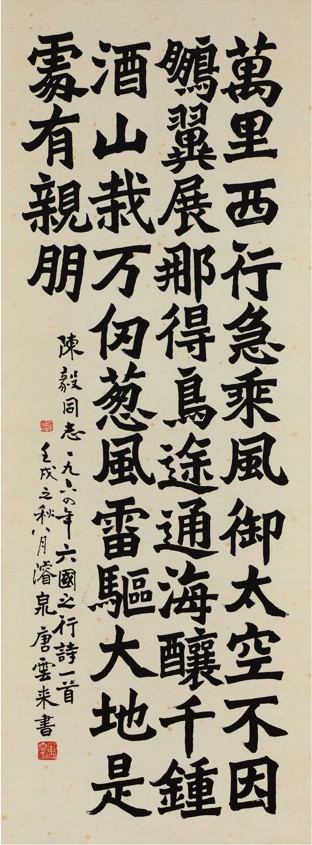 萬里西行急乘風御太空不因
鵬翼展那得鳥途通海釀千鍾
酒山栽万仞葱風雷驅大地是
處有親朋
陳毅同志一九六四年六國之行詩一首
壬戌之秋八月濬泉唐雲来書